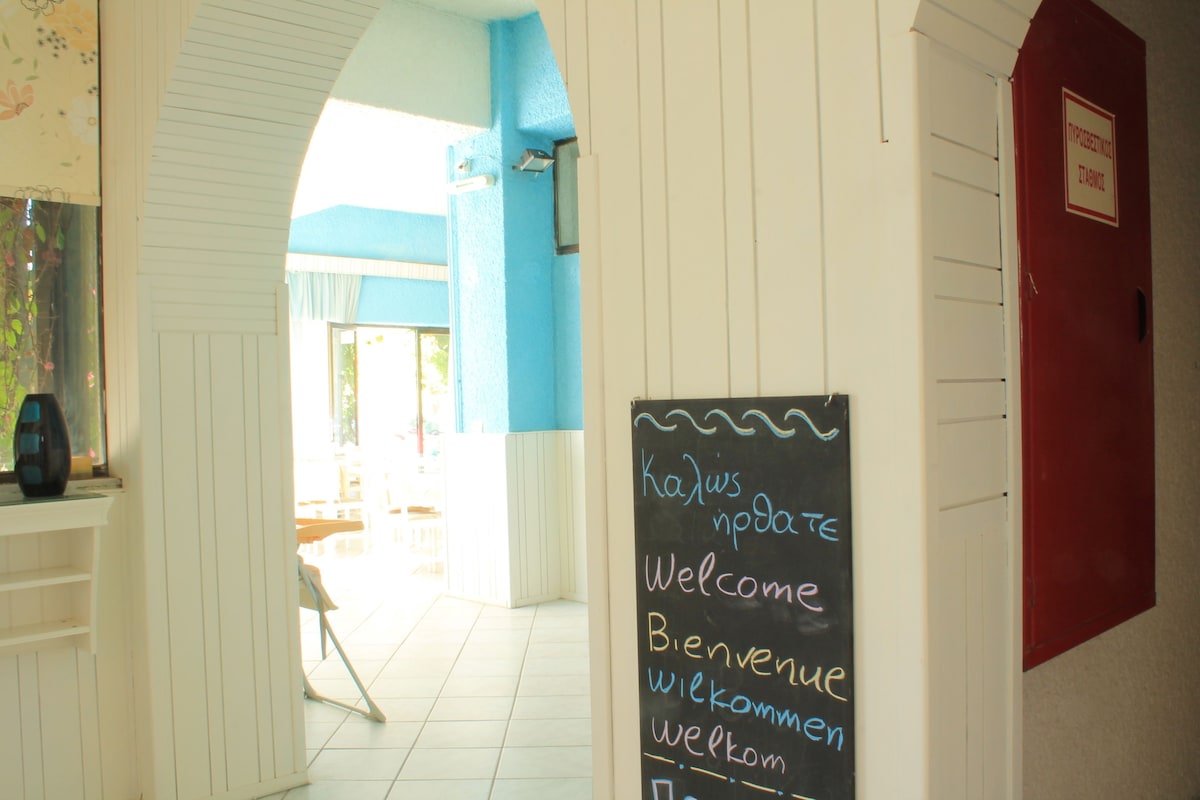 ΠΥΡΟΣΒΕΣΤΙΚΟΣ
ΣΤΑΘΜΟΣ
Καλώς
ήρθατε
Welcome
Bienvenue
wilkommen
welkom